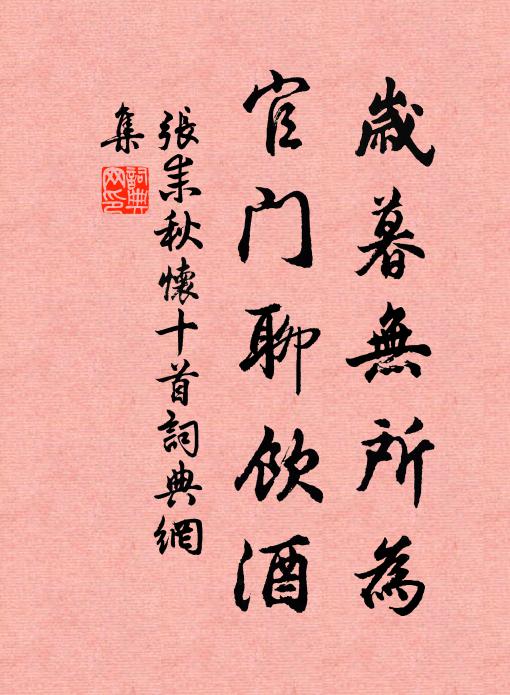 歲暮無所為
官门聊飲酒
張耒秋懷十首詞典網
集
詞典网印